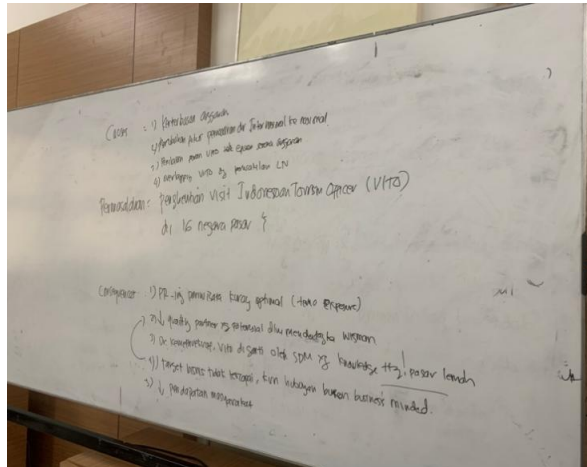 Causes = 1) Keterbatasan anggaran
2) Perubahan fokus pemasaran dr Internasional ke nasional
3) Penilaian peran VITO tdk sesuai anggaran
4) Overlapping VITO dg perwakilan LN
Permasalahan = Penghentian Visit Indonesian Tourism Officer (VITO)
di 16 negara pasar
Consequences : 1) PR-ing pariwisata kurang optimal (temp exposure)
2) ↓ quality partner yg potensial dlm mendatangkan wisman
3) VITO diganti oleh SDM yg knowledge ttg pasar lemah
4) Target bisnis tidak tercapai, krn hubungan bukan business minded.
5) ↓ pendapatan masyarakat